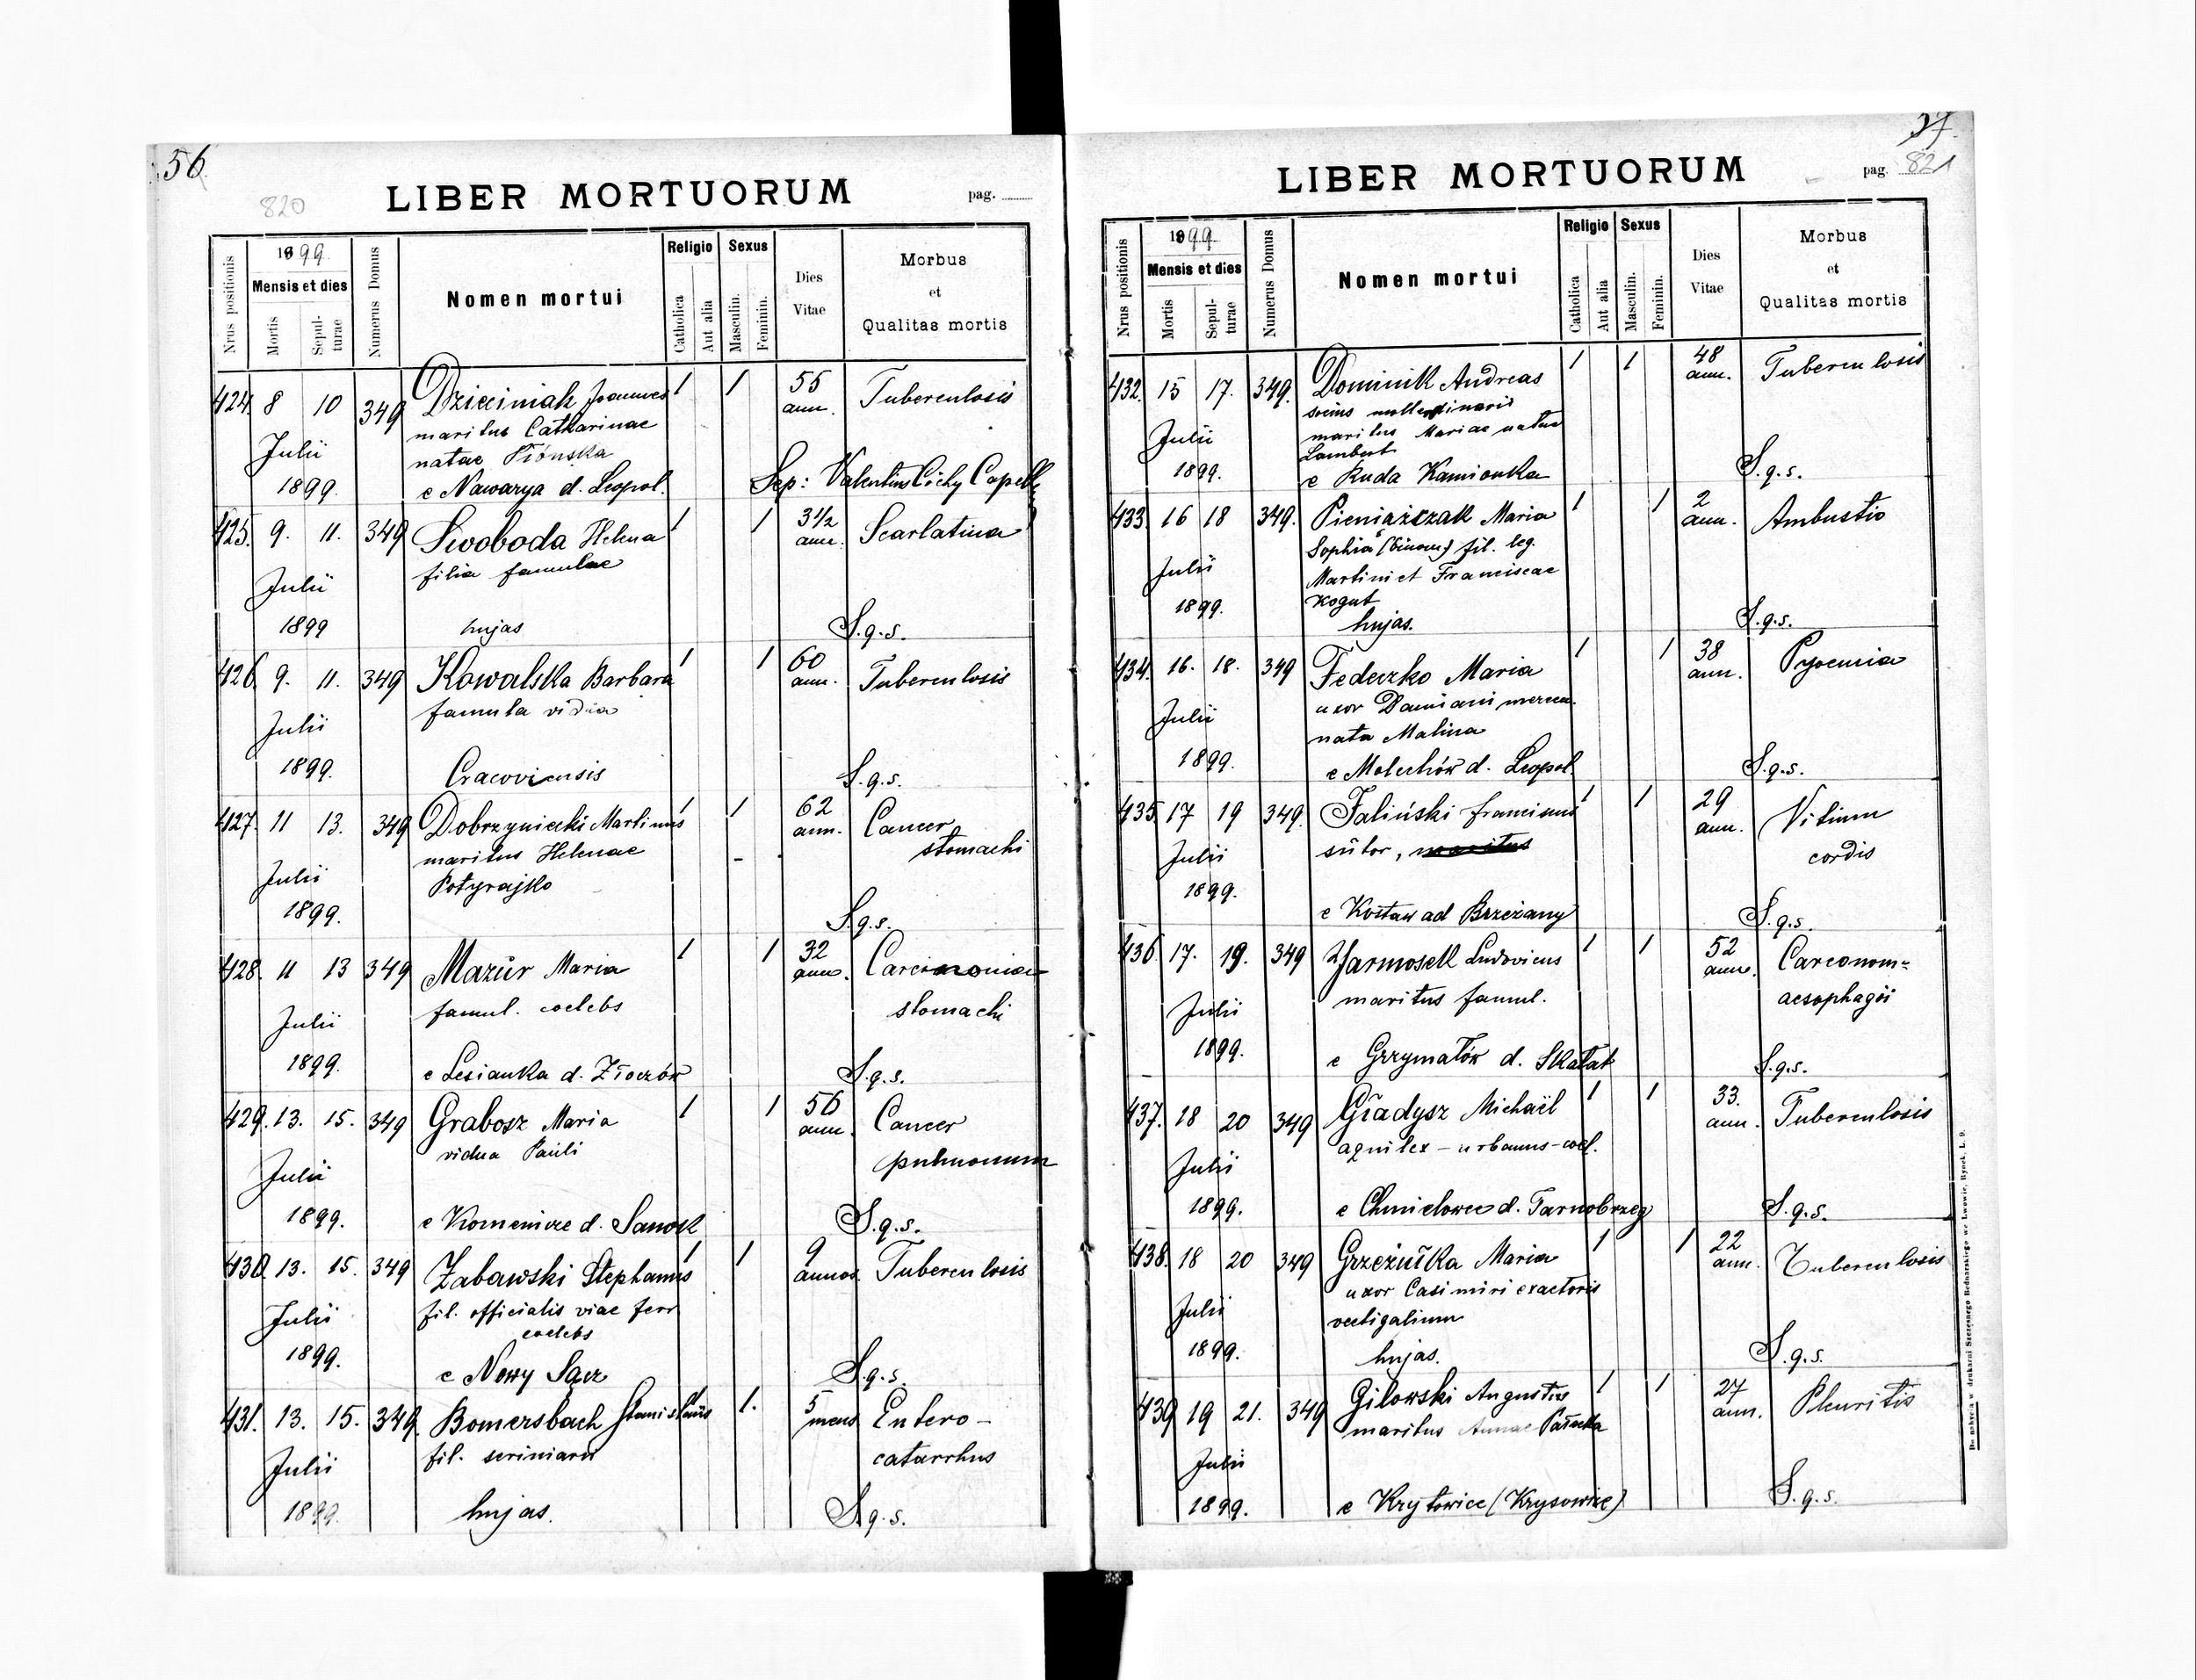 56
820
LIBER MORTUORUM
pag.
Nrus positionis
1899.
Mensis et dies
Mortis
Sepulturae
Numerus Domus
Nomen mortui
Religio
Catholica
Aut alia
Sexus
Masculin.
Feminin.
Dies
Vitae
Morbus
et
Qualitas mortis
424. 8 10 349 Dzieciniak Joannes 1 1 55 ann. Tuberculosis
maritus Catharinae
Julii natae
1899. e Nawarya d. Leopol. Sep: Valentins Cichy Capell
425. 9. 11. 349 Swoboda Helena 1 1 3 1/2 ann. Scarlatina
filia famulae
Julii
1899 hujas S.q.s.
426. 9. 11. 349 Kowalska Barbara 1 1 60 ann. Tuberculosis
famula vidua
Julii
1899. Cracoviensis S.q.s.
427. 11 13. 349 Dobrzyniecki Martinus 1 1 62 ann. Cancer
maritus Helenae stomachi
Julii Potyrajko
1899. S.q.s.
428. 11 13 349 Mazur Maria 1 1 32 ann. Carcinonia
famul. coelebs stomachi
Julii
1899. e Lesianka d. Złoczów S.q.s.
429. 13. 15. 349 Grabosz Maria 1 1 56 ann. Cancer
vidua Pauli pulmonum
Julii
1899. e Komenicze d. Sanok S.q.s.
430. 13. 15. 349 Zabawski Stephanus 1 1 9 annos. Tuberculosis
Julii fil. officialis viae ferr
coelebs
1899. e Nowy Sącz S.q.s.
431. 13. 15. 349. Bomersbach Stanislaus 1. 5 mens Entero-
fil. scriniarii catarrhus
Julii
1899. hujas. S.q.s.
57.
LIBER MORTUORUM
pag. 821
Nrus positionis
1899.
Mensis et dies
Mortis
Sepulturae
Numerus Domus
Nomen mortui
Religio
Catholica
Aut alia
Sexus
Masculin.
Feminin.
Dies
Vitae
Morbus
et
Qualitas mortis
432. 15 17. 349. Dominik Andreas 1 1 48 ann. Tuberculosis
socius
Julii maritus Mariae natae
Lambert
1899. e Ruda Kamionka S.q.s.
433 16 18 349. Pieniażczak Maria 1 1 2 ann. Ambustio
Sophia (binom) fil. leg.
Julii Martini et Franciscae
1899. Kogut
hujas. S.q.s.
434. 16. 18. 349 Fedeczko Maria 1 1 38 ann. Pyoemia
uxor Damiani mercen.
Julii nata Malina
1899. e Malechów d. Leopol. S.q.s.
435. 17 19 349. Faliński Franciscus 1 1 29 ann. Vitium
Julii sutor, maritus cordis
1899.
e Kostaw ad Brzeżany S.q.s.
436. 17. 19. 349 Harmosek Ludovicus 1 1 52 ann. Carconom=
maritus famul. aesophagii
Julii
1899. e Grzymałów d. Skałat S.q.s.
437. 18 20 349 Gładysz Michaël 1 1 33. ann. Tuberculosis
aquilex - urbanus - coel.
Julii
1899. e Chmielowee d. Tarnobrzeg S.q.s.
438. 18 20 349 Grzeżułka Maria 1 1 22 ann. Tuberculosis
uxor Casimiri exactoris
Julii vectigalium
1899. hujas. S.q.s.
439 19 21. 349 Gilowski Augustus 1 1 27 ann. Pleuritis
maritus Annae Pałucka
Julii
1899. e Krytowice (Krysowice) S.q.s.
Do nabycia w drukarni Szczęsnego Bednarskiego we Lwowie, Rynek, L. 9.